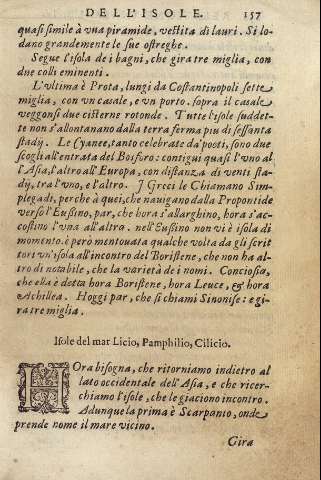 DELL'ISOLE. 157
quasi simile à vna piramide, vestita di lauri. Si lo-
dano grandemente le sue ostreghe.
Segue l'isola de i bagni, che gira tre miglia, con
due colli eminenti.
L'vltima è Prota, lungi da Costantinopoli sette
miglia, con vn casale, e vn porto. sopra il casale
veggonsi due cisterne rotonde. Tutte l'isole suddet-
te non s'allontanano dalla terra ferma piu di sessanta
stadÿ. Le Cyanee, tanto celebrate da' poeti, sono due
scogli all'entrata del Bosforo: contigui quasi l'vno al
l'Asia, l'altro all'Europa, con distanza di venti sta-
dÿ, tra l'vno, e l'altro. I Greci le Chiamano Sim-
plegadi, perche à quei, che nauigano dalla Propontide
verso l'Eusino, par, che hora s'allarghino, hora s'ac-
costino l'vna all'altra. nell'Eusino non vi è isola di
momento. è però mentouata qualche volta da gli scrit
tori vn'isola all'incontro del Boristene, che non ha al-
tro di notabile, che la varietà de i nomi. Conciosia,
che ella è detta hora Boristene, hora Leuce, & hora
Achillea. Hoggi par, che si chiami Sinonise: e gi
ra tre miglia.
Isole del mar Licio, Pamphilio, Cilicio.
HOra bisogna, che ritorniamo indietro al
lato occidentale dell'Asia, e che ricer-
chiamo l'isole, che le giaciono incontro.
Adunque la prima è Scarpanto, onde
prende nome il mare vicino.
Gira